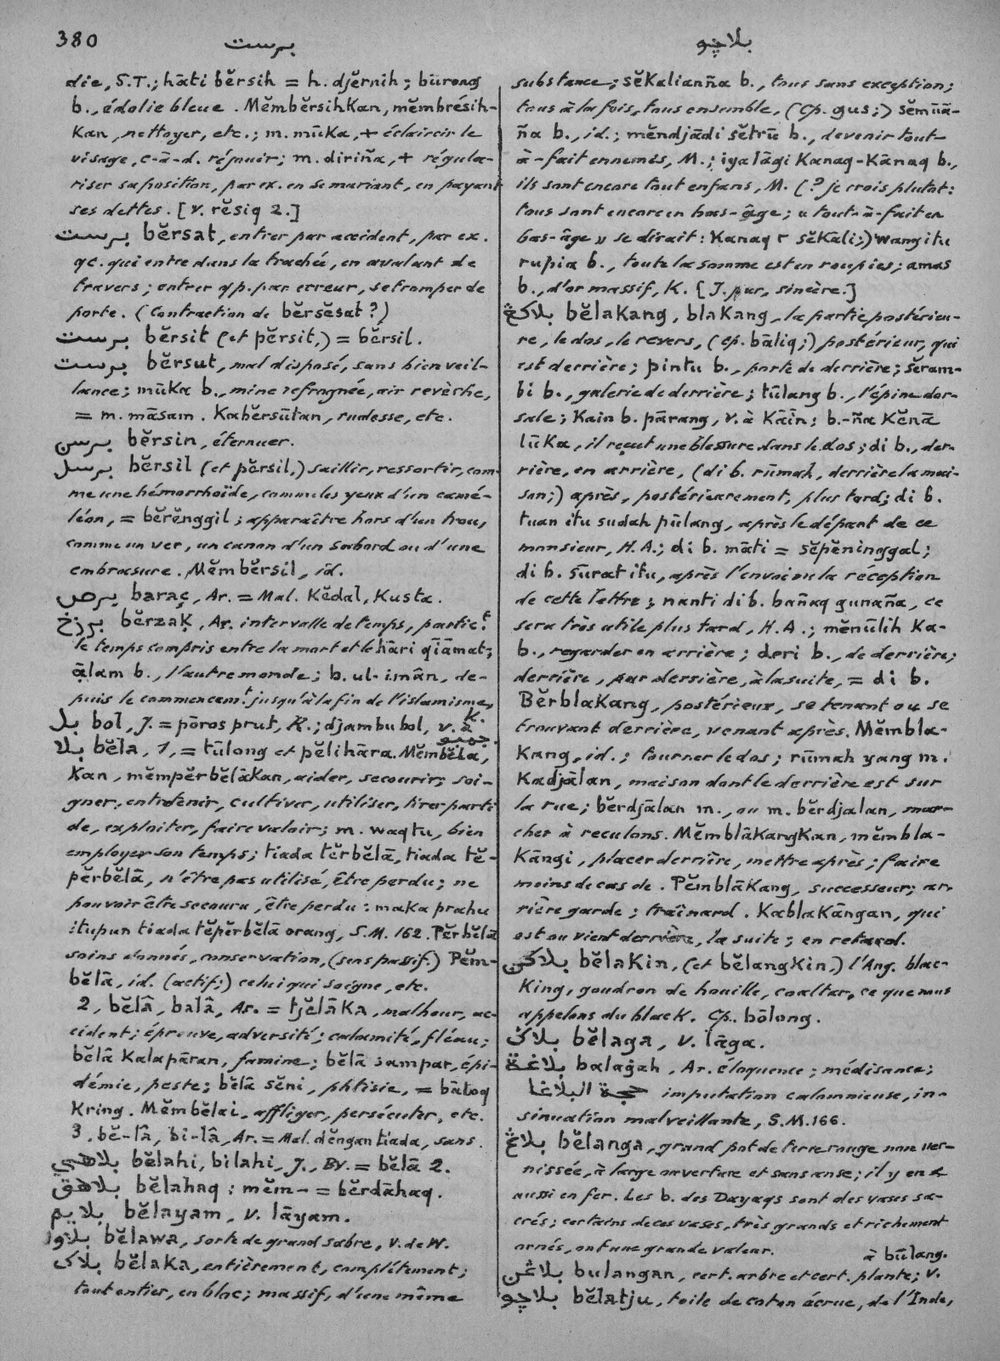 380
برست
بلاچو
die, S.T.; hāti bĕrsih = h. djĕrnih; būrong
b., édolie bleue. MĕmbĕrsihKan, mĕmbrésih-
Kan, nettoyer, etc.; m. mūKa, + éclaircir le
visage, c-à-d. réjouir; m. diriña, + régula-
riser sa position, par ex. en se mariant, en payant
ses dettes. [v. rĕsiq 2.]
برست bĕrsat, entrer par accident, par ex.
qc. qui entre dans la trachée, en avalant de
travers; entrer qp. par erreur, se tromper de
porte. (Contraction de bĕrsĕsat?)
برست bĕrsit (et pĕrsit,) = bĕrsil.
برست bĕrsut, mal disposé, sans bien veil-
lance; mūKa b., mine refrognée, air revêche,
= m. māsam. Kabĕrsūtan, rudesse, etc.
برسن bĕrsin, éternuer.
برسل bĕrsil (et pĕrsil,) saillir, ressortir, com-
me une hémorrhoïde, comme les yeux d'un camé-
léon, = bĕrĕnggil; apparaître hors d'un trou,
comme un ver, un canon d'un sabord ou d'une
embrasure. Mĕmbĕrsil, id.
برص baraç, Ar. = Mal. Kĕdal, Kusta.
برزخ bĕrzaḳ, Ar. intervalle de temps, partic.t
le temps compris entre la mort et le hāri qīāmat;
ālam b., l'autre monde; b. ul-imân, de-
puis le commencem.t jusqu'à la fin de l'islamisme,
K.
بل bol, J. = pōros prut, K.; djambu bol, v. à
جمبو
بلا bĕla, 1, = tūlong et pĕlihāra. Mĕmbĕla,
Kan, mĕmpĕrbĕlāKan, aider, secourir; soi-
gner, entretenir, cultiver, utiliser, tirer parti
de, exploiter, faire valoir; m. waqtu, bien
employer son temps; tiada tĕrbĕlā, tiada tĕ-
pĕrbĕlā, n'être pas utilisé, être perdu; ne
pouvoir être secouru, être perdu: maka prahu
itupun tiada tĕpĕrbĕlā orang, S.M. 162. Pĕrbĕlā
soins donnés, conservation, (sens passif.) Pĕm-
bĕlā, id. (actif;) celui qui soigne, etc.
2, bĕlâ, balâ, Ar. = tjĕlāKa, malheur, ac-
cident; épreuve, adversité; calamité, fléau;
bĕlā Kalapāran, famine; bĕlā sampar, épi-
démie, peste; bĕlā sĕni, phtisie, = bātoq
Kring. Mĕmbĕlai, affliger, persécuter, etc.
3, bĕ-lâ, bi-lâ, Ar. = Mal. dĕngan tiada, sans.
بلاهي bĕlahi, bilahi, J., Bv. = bĕlā 2.
بلاهق bĕlahaq: mĕm- = bĕrdāhaq.
بلايم bĕlayam, v. lāyam.
بلاوا bĕlawa, sorte de grand sabre, v. de W.
بلاک bĕlaKa, entièrement, complètement;
tout entier, en bloc; massif, d'une même
substance; sĕKalianña b., tous sans exception;
tous à la fois, tous ensemble, (Cp. gus;) sĕmūā-
ña b., id.; mĕndjādi sĕtrū b., devenir tout-
à-fait ennemis, M.; iya lāgi Kanaq-Kānaq b.,
ils sont encore tout enfans, M. (? je crois plutôt:
tous sont encore en bas-âge; « tout-à-fait en
bas-âge » se dirait: Kanaq² sĕKali;) wang itu
rupia b., toute la somme est en roupies; amas
b., d'or massif, K. [J. pur, sincère.]
بلاکڠ bĕlaKang, blaKang, la partie postérieu-
re, le dos, le revers, (cp. bāliq;) postérieur, qui
est derrière; pintu b., porte de derrière; sĕram-
bi b., galerie de derrière; tūlang b., l'épine dor-
sale; Kain b. pārang, v. à Kāin; b.-ña Kĕnā
lūKa, il reçut une blessure dans le dos; di b., der-
rière, en arrière, (di b. rūmah, derrière la mai-
son;) après, postérieurement, plus tard; di b.
tuan itu sudah pūlang, après le départ de ce
monsieur, H.A.; di b. māti = sĕpĕninggal;
di b. sūrat itu, après l'envoi ou la réception
de cette lettre; nanti di b. bañaq gunaña, ce
sera très utile plus tard, H.A.; mĕnūlih Ka-
b., regarder en arrière; deri b., de derrière;
derrière, par derrière, à la suite, = di b.
BĕrblaKang, postérieur, se tenant ou se
trouvant derrière, venant après. Mĕmbla-
Kang, id.; tourner le dos; rūmah yang m.
Kadjālan, maison dont le derrière est sur
la rue; bĕrdjālan m., ou m. bĕrdjalan, mar-
cher à reculons. MĕmblāKangKan, mĕmbla-
Kāngi, placer derrière, mettre après; faire
moins de cas de. PĕmblāKang, successeur; ar-
rière garde; traînard. KablaKāngan, qui
est ou vient derrière, la suite; en retard.
بلاکين bĕlaKin, (et bĕlangKin,) l'Ang. blac-
King, goudron de houille, coaltar, ce que nous
appelons du blacK. Cp. bōlong.
بلاݢ bĕlaga, v. lāga.
بلاغة balaġah, Ar. éloquence; médisance;
حجة البلاغا imputation calomnieuse, in-
sinuation malveillante, S.M. 166.
بلاڠ bĕlanga, grand pot de terre rouge non ver-
nissée, à large ouverture et sans anse; il y en a
aussi en fer. Les b. des Dayaqs sont des vases sa-
crés; certains de ces vases, très grands et richement
ornés, ont une grande valeur.
à būlang.
بلاڠن bulangan, cert. arbre et cert. plante; v.
بلاچو bĕlatju, toile de coton écrue, de l'Inde,